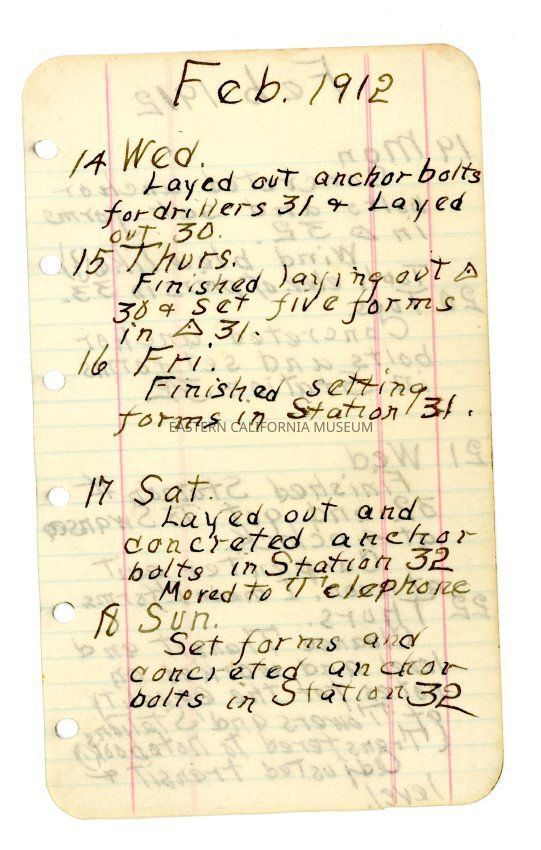 Feb. 1912
14 Wed.
Layed out anchor bolts
for drillers 31 & Layed
out 30.
15 Thurs.
Finished laying out △
30 & set five forms
in △ 31.
16 Fri.
Finished setting
forms in Station 31.
EASTERN CALIFORNIA MUSEUM
17 Sat.
Layed out and
concreted anchor
bolts in Station 32
Moved to Telephone
18 Sun.
Set forms and
concreted anchor
bolts in Station 32